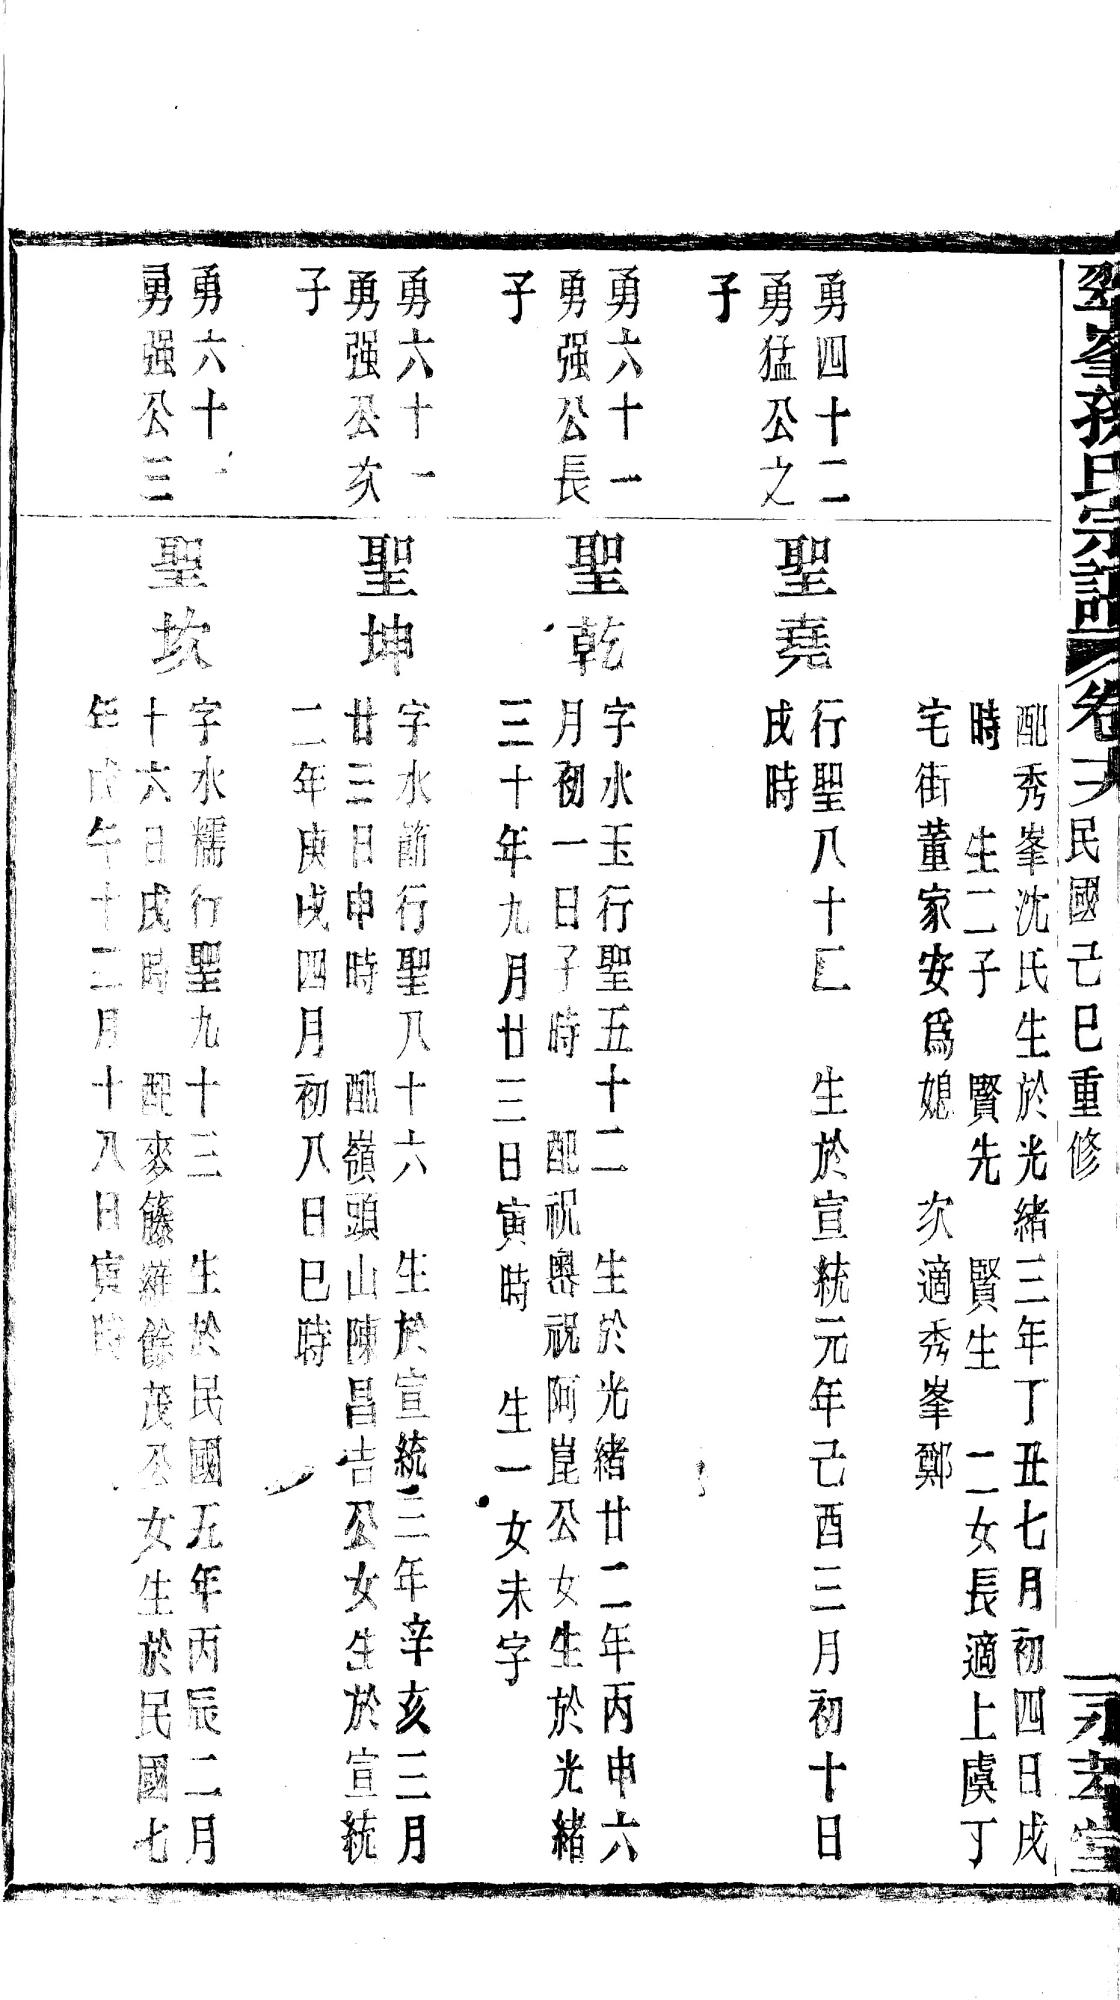 翠峯孫氏宗譜 卷 民國己巳重修 堂
配秀峯沈氏生於光緒三年丁丑七月初四日戌
時 生二子 賢先 賢生 二女長適上虞丁
宅街董家安爲媳 次適秀峯鄭
勇四十二
勇猛公之
子
聖堯
行聖八十 生於宣統元年己酉三月初十日
戌時
勇六十一
勇强公長
子
聖乾
字水玉行聖五十二 生於光緒廿二年丙申六
月初一日子時 配祝嶴祝阿崑公女生於光緒
三十年九月廿三日寅時 生一女未字
勇六十一
勇强公次
子
聖坤
字水節行聖八十六 生於宣統三年辛亥三月
廿三日申時 配嶺頭山陳昌吉公女生於宣統
二年庚戌四月初八日巳時
勇六十一
勇强公三
聖坎
字水檽行聖九十三 生於民國五年丙辰二月
十六日戌時 配麥籐羅餘茂公女生於民國七
年戊午十二月十八日寅時